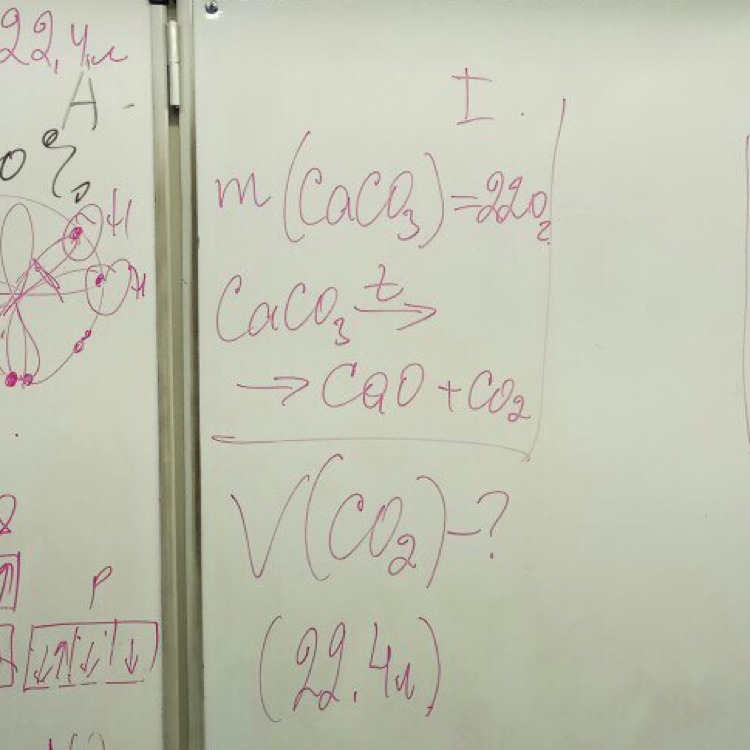 22,4л
A
0%
H
H
P
I.
m(CaCO₃)=220г
CaCO₃ t→
→ CaO+CO₂
V(CO₂)-?
(22.4л)